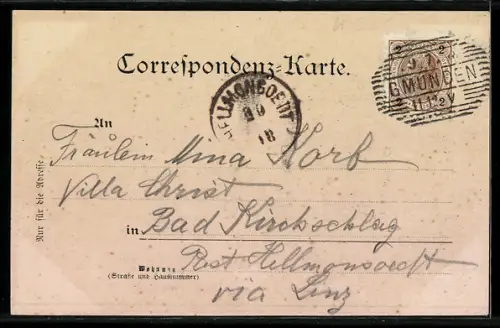 Correspondenz-Karte.
2 2
GMUNDEN
HELLMONSOEDT
An
Fräulein Mina Korb
Villa Christ
in Bad Kirchschlag
Wohnung
(Straße und Hausnummer)
Post Hellmonsoedt
via Linz
Nur für die Adresse.